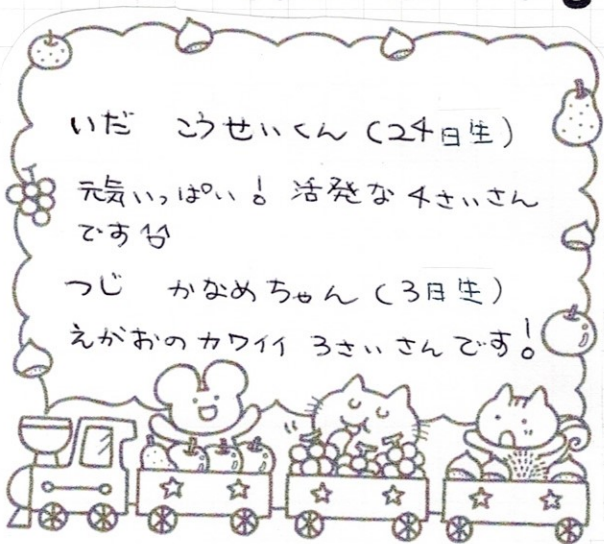 いだ こうせいくん(24日生)
元気いっぱい!活発な4さいさん
です
つじ かなめちゃん(3日生)
えがおのカワイイ3さいさんです!